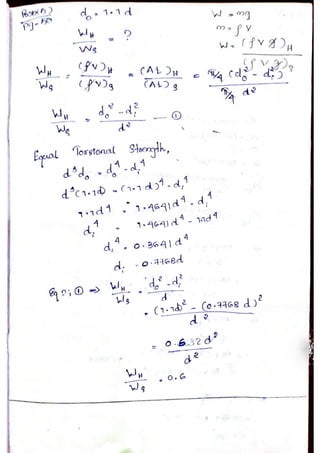 d₀ = 1.1d
W = mg
m = ρV
W_H / W_S = ?
W = (ρVg)_H / (ρVg)
W_H / W_S = (ρV)_H / (ρV)_S = (AL)_H / (AL)_S = π/4 (d₀² - dᵢ²) / π/4 d²
W_H / W_S = d₀² - dᵢ² / d² — ①
Equal Torsional Strength,
d³d₀ = d₀⁴ - dᵢ⁴
d³(1.1d) = (1.1d)⁴ - dᵢ⁴
1.1d⁴ = 1.4641d⁴ - dᵢ⁴
dᵢ⁴ = 1.4641d⁴ - 1.1d⁴
dᵢ⁴ = 0.3641d⁴
dᵢ = 0.7768d
① ⇒ W_H / W_S = d₀² - dᵢ² / d
= (1.1d)² - (0.7768d)² / d²
= 0.632d² / d²
W_H / W_S = 0.6